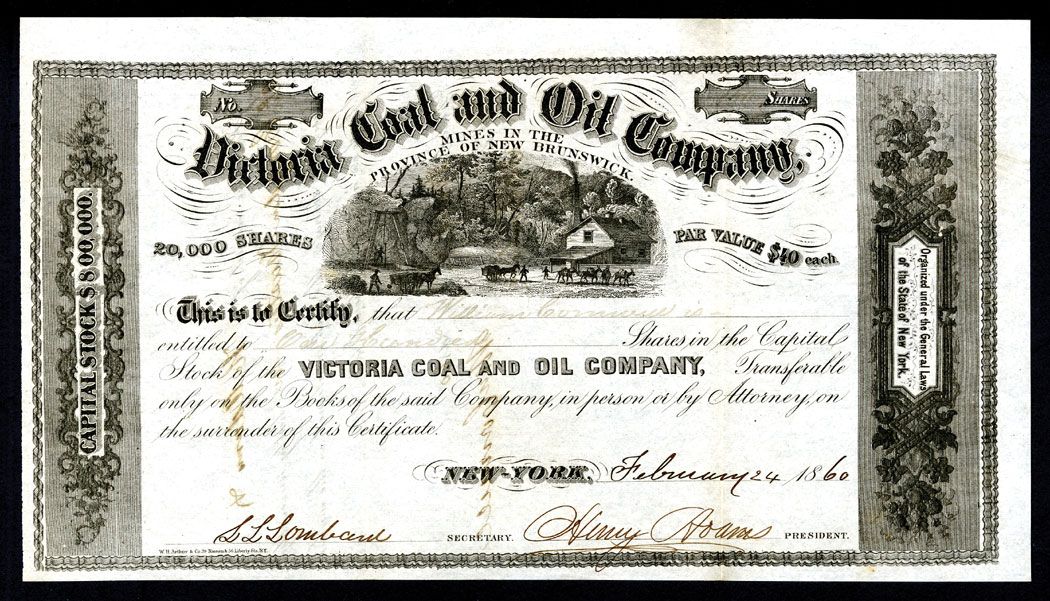 No.
SHARES
Victoria Coal and Oil Company,
MINES IN THE
PROVINCE OF NEW BRUNSWICK.
20,000 SHARES
PAR VALUE $40 each.
CAPITAL STOCK $800,000.
Organized under the General Laws
of the State of New York.
This is to Certify, that William Cornwell is
entitled to One Hundred Shares in the Capital
Stock of the VICTORIA COAL AND OIL COMPANY, Transferable
only on the Books of the said Company, in person or by Attorney, on
the surrender of this Certificate.
NEW-YORK, February 24 1860
S L Lombard SECRETARY. Henry Adams PRESIDENT.
W. H. Arthur & Co. 39 Nassau & 56 Liberty Sts. N.Y.